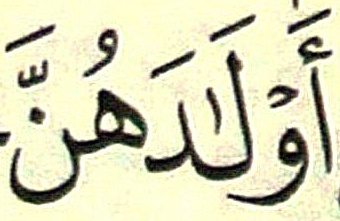 أَوْلَٰدَهُنَّ